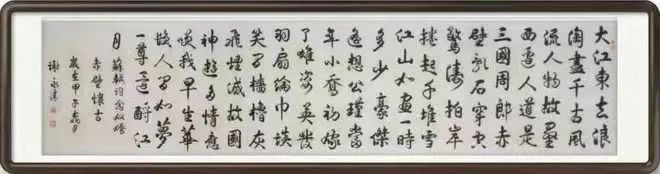 大江東去浪
淘盡千古風
流人物故壘
西邊人道是
三國周郎赤
壁亂石穿空
驚濤拍岸
捲起千堆雪
江山如畫一時
多少豪傑
遙想公瑾當
年小喬初嫁
了雄姿英發
羽扇綸巾談
笑間檣櫓灰
飛煙滅故國
神遊多情應
笑我早生華
髮人間如夢
一尊還酹江
月
蘇軾詞念奴嬌
赤壁懷古
歲在甲
謝永